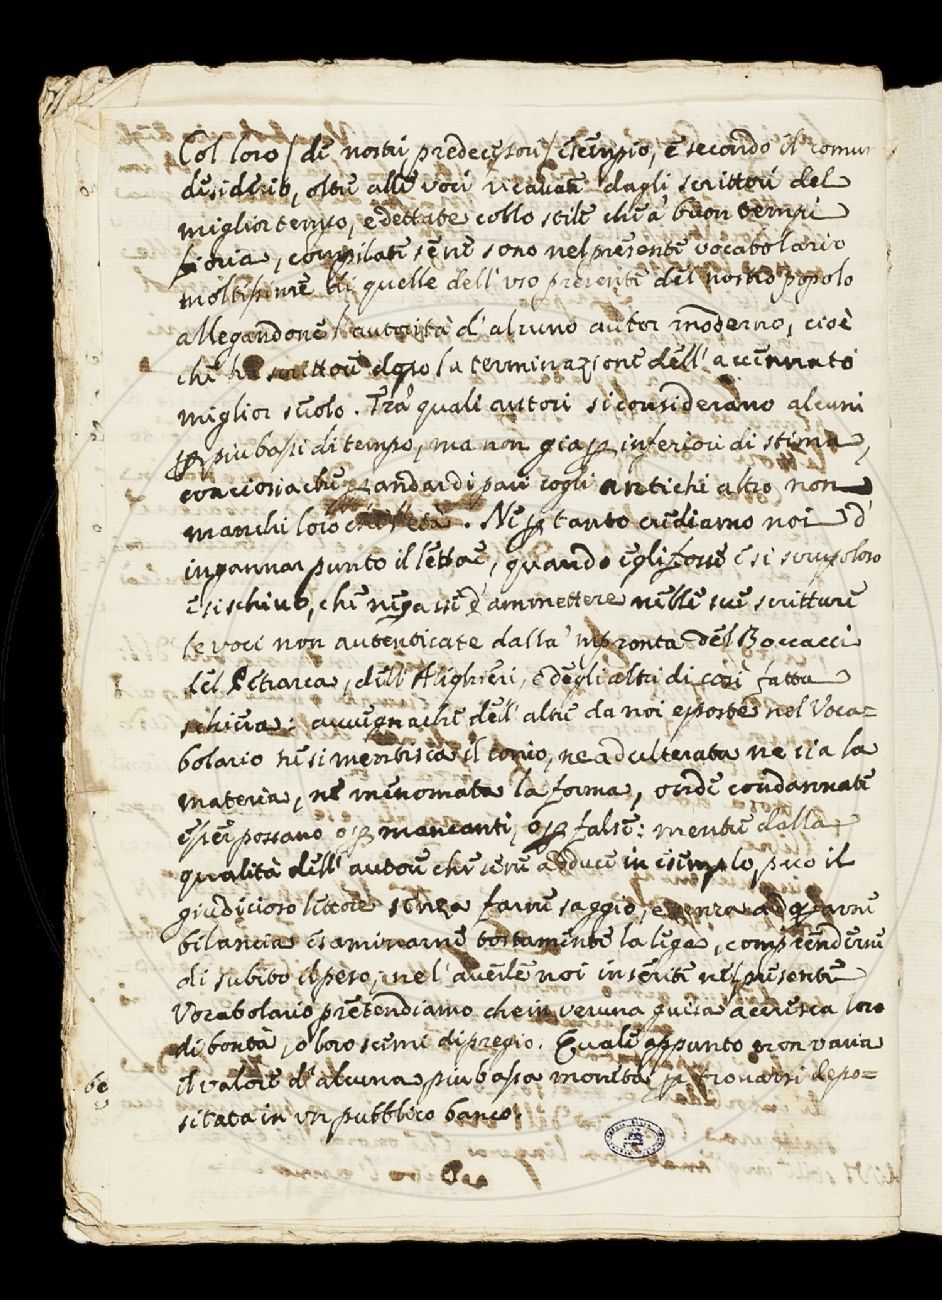 Col loro / de nostri predecessori / esempio, e secondo il comun
desiderio, oltre alle voci ricavate dagli scrittori del
miglior tempo, e dettate collo stile che a' buon tempi
fioria, compilate se ne sono nel presente vocabolario
moltissime di quelle dell'uso presente del nostro popolo
allegandone l'autorità d'alcuno autor moderno, cioè
che ha scritto dopo la terminazione dell'accennato
miglior secolo. Tra' quali autori si considerano alcuni
più bassi di tempo, ma non già inferiori di stima,
andar di pari cogli antichi altro non
manchi loro che l'età. Ne tanto crediamo noi d'
ingannar punto il lettore, quando egli fosse e si scrupoloso
e si schivo, che negasse d'ammettere nelle sue scritture
le voci non autenticate dalla 'mpronta del Boccacci
del Petrarca, dell'Alighieri, e degli altri di così fatta
schiera: avvegnache dell'altre da noi esposte nel Voca=
bolario ne si mentisca il conio, ne adulterata ne sia la
materia, ne menomata la forma, onde condannate
esser possano o mancanti, o false: mentre dalla
qualità dell'autore che se ne adduce in esemplo, può il
giudicioso lettore senza farne saggio, e senza
bilancia esaminarne tostamente la lega, comprenderne
di subito il peso; ne l'averle noi inserite nel presente
Vocabolario pretendiamo che in veruna guisa accresca loro
di bontà, o loro scemi di pregio. Quale appunto non varia
il valore d'alcuna più bassa moneta trovarsi depo=
sitata in un pubblico banco.